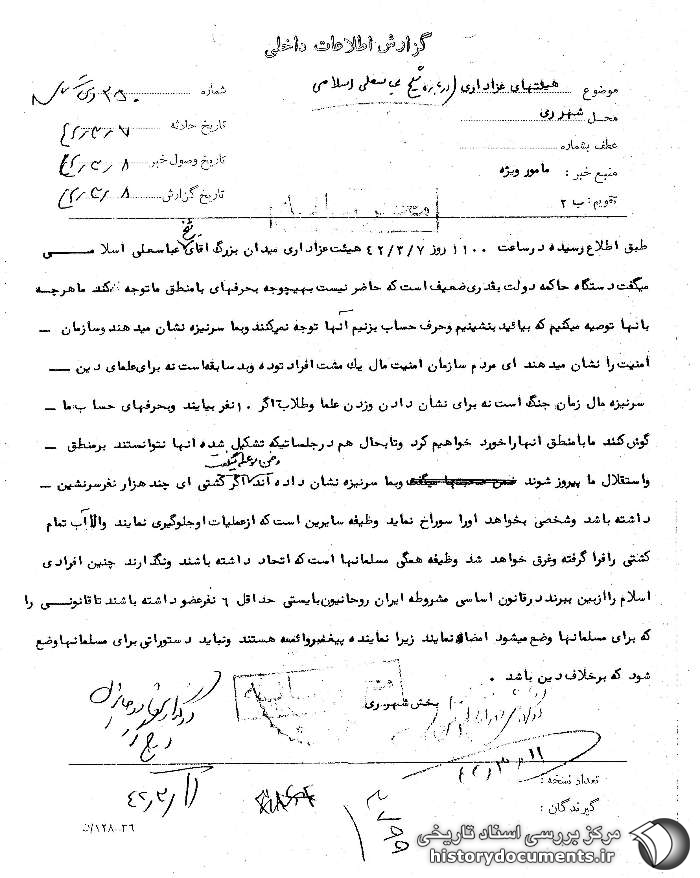 گزارش اطلاعات داخلی
موضوع هیئتهای عزاداری (درباره شیخ عباسعلی اسلامی
شماره
محل شهرری
تاریخ حادثه ۴۲٫۳٫۷
عطف بشماره
تاریخ وصول خبر ۴۲٫۳٫۸
منبع خبر : مامور ویژه
تاریخ گزارش ۴۲٫۳٫۸
تقویم : ب ۲
طبق اطلاع رسیده در ساعت ۱۱۰۰ روز ۴۲/۳/۷ هیئت عزاداری میدان بزرگ آقای شیخ عباسعلی اسلامی
میگفت دستگاه حاکمه دولت بقدری ضعیف است که حاضر نیست بهیچوجه بحرفهای با منطق ما توجه کند ما هر چه
بانها توصیه میکنیم که بیائید بنشینیم و حرف حساب بزنیم آنها توجه نمیکنند و بما سرنیزه نشان میدهند و سازمان ـ
امنیت را نشان میدهند ای مردم سازمان امنیت مال یك مشت افراد توده و بد سابقه است نه برای علمای دین ـ
سرنیزه مال زمان جنگ است نه برای نشان دادن و زدن علما و طلاب اگر ۱۰ نفر بیایند و بحرفهای حساب ما ـ
گوش کنند ما با منطق آنها را خورد خواهیم کرد و تا بحال هم در جلساتیکه تشکیل شده آنها نتوانستند بر منطق ـ
و استقلال ما پیروز شوند و بما سرنیزه نشان داده اند اگر کشتی ای چند هزار نفر سرنشین ـ
داشته باشد و شخصی بخواهد اورا سوراخ نماید وظیفه سایرین است که از عملیات او جلوگیری نمایند والا آب تمام
کشتی را فرا گرفته و غرق خواهد شد وظیفه همگی مسلمانها است که اتحاد داشته باشند و نگذارند چنین افرادی
اسلام را از بین ببرند در قانون اساسی مشروطه ایران روحانیون بایستی حداقل ۶ نفر عضو داشته باشند تا قانونی را
که برای مسلمانها وضع میشود امضاء نمایند زیرا نماینده پیغمبر و ائمه هستند و نباید دستوراتی برای مسلمانها وضع
شود که برخلاف دین باشد .
بخش شهرری
تعداد نسخه :
۴۲٫۳٫۱۱
گیرندگان :
۱۲۸-۳۶/ث
مرکز بررسی اسناد تاریخی
historydocuments.ir